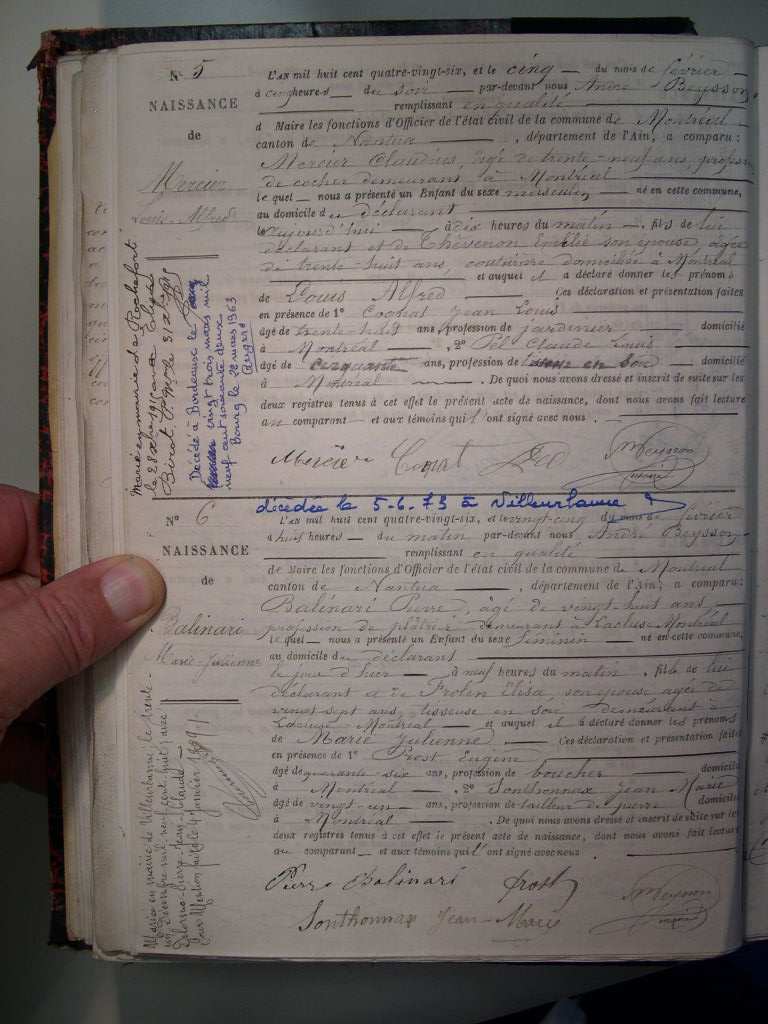 N° 5
NAISSANCE
de
Mercier
Louis Alfred
L'AN mil huit cent quatre-vingt-six, et le cinq du mois de février
à cinq heures du soir par-devant nous André Beysson,
remplissant en qualité
d Maire les fonctions d'Officier de l'état civil de la commune de Montréal
canton de Nantua, département de l'Ain, a comparu:
Mercier Claudius, âgé de trente-neuf ans, profession
de cocher demeurant à Montréal
le quel nous a présenté un Enfant du sexe masculin né en cette commune,
au domicile du déclarant
le aujourd'hui à dix heures du matin. fils de lui
déclarant et de Thévenon Emélie son épouse, agée
de trente-huit ans, couturière domiciliée à Montréal
et auquel il a déclaré donner les prénoms
de Louis Alfred Ces déclaration et présentation faites
en présence de 1° Jean Louis
âgé de trente-huit ans, profession de jardinier domicilié
à Montréal, 2° Claude Louis
âgé de cinquante ans, profession de domicilié
à Montréal. De quoi nous avons dressé et inscrit de suite sur les
deux registres tenus à cet effet le présent acte de naissance, dont nous avons fait lecture
au comparant et aux témoins qui l'ont signé avec nous.
Mercier
Marié en mairie de Rochefort
le 28 1910 avec
Birot
Décédé à Bordeaux le
vingt trois mars mil
neuf cent soixante deux
Bourg le 28 mars 1963
décédée le 5-6-73 à Villeurbanne
N° 6
NAISSANCE
de
Balinari
Marie Julienne
L'AN mil huit cent quatre-vingt-six, et le vingt-cinq du mois de février
à huit heures du matin par-devant nous André Beysson,
remplissant en qualité
de Maire les fonctions d'Officier de l'état civil de la commune de Montréal
canton de Nantua, département de l'Ain; a comparu:
Balinari Pierre, âgé de vingt-huit ans
profession de plâtrier demeurant à Lacluse-Montréal
le quel nous a présenté un Enfant du sexe féminin né en cette commune,
au domicile du déclarant
le jour d'hier à neuf heures du matin. fille de lui
déclarant et de Elisa, son épouse agée de
vingt sept ans, tisseuse en soie demeurant à
Lacluse-Montréal et auquel il a déclaré donner les prénoms
de Marie Julienne Ces déclaration et présentation faites
en présence de 1° Prost Eugène
âgé de quarante six ans, profession de boucher domicilié
à Montréal, 2° Sonthonnax Jean Marie
âgé de vingt-un ans, profession de tailleur de pierre domicilié
à Montréal. De quoi nous avons dressé et inscrit de suite sur les
deux registres tenus à cet effet le présent acte de naissance, dont nous avons fait lecture
au comparant et aux témoins qui l'ont signé avec nous
Pierre Balinari Prost
Sonthonnax Jean-Marie
Mariée en mairie de Villeurbanne, le trente-
un Décembre mil neuf cent huit, avec
Delorme Pierre Jean-Claude
Pour Mention faite le 4 Janvier 1909